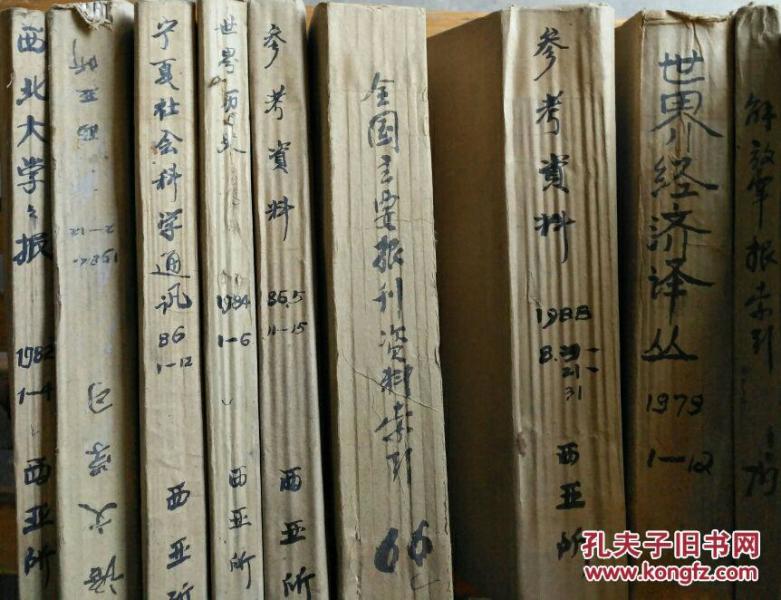 西北大学々报
1982
1-4
西亚所
语文学习
1984.
2-12
西亚所
宁夏社会科学通讯
86
1-12
西亚所
世界历史
1984
1-6
西亚所
参考資料
86.5
11-15
西亚所
全国主要报刊资料索引
66
参考資料
1988
8.
21-
31
西亚所
世界经济译丛
1979
1-12
解放军报索引
孔夫子旧书网
www.kongfz.com